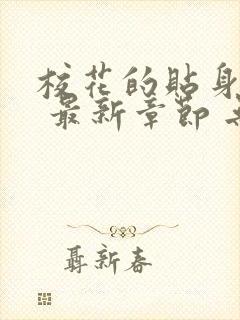 校花的贴身
最新章节
聂新春